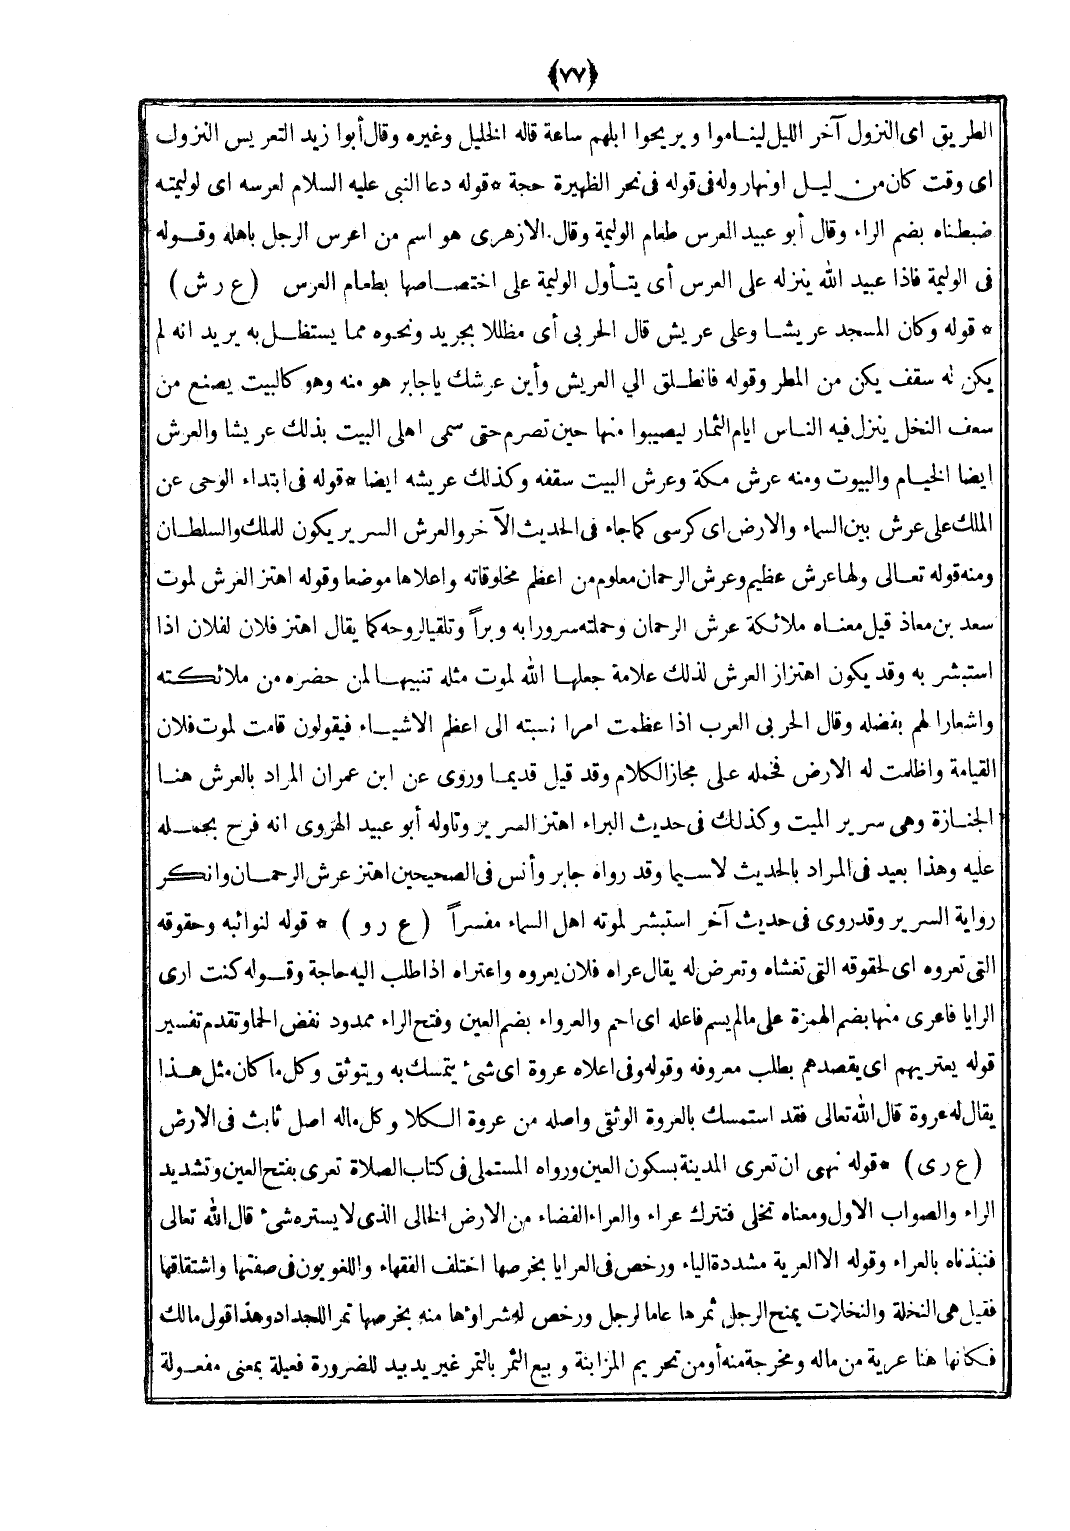 ﴿٧٧﴾
الطريق اى النزول آخر الليل لينـاموا ويريحوا ابلهم ساعة قاله الخليل وغيره وقال أبوا زيد التعريس النزول
اى وقت كان من ليـل اونهار وله فى قوله فى نحر الظهيرة حجة * قوله دعا النبى عليه السلام لعرسه اى لوليمته
ضبطناه بضم الراء وقال أبو عبيد العرس طعام الوليمة وقال. الازهرى هو اسم من اعرس الرجل باهله وقـوله
فى الوليمة فاذا عبيد الله ينزله على العرس أى يتـأول الوليمة على اختصـاصها بطعام العرس ( ع ر ش )
* قوله وكان المسجد عريشـا وعلى عريش قال الحربى أى مظللا بجريد ونحوه مما يستظـل به يريد انه لم
يكن له سقف يكن من المطر وقوله فانطـلق الي العريش وأين عرشك ياجابر هو منه وهو كالبيت يصنع من
سعف النخل ينزل فيه النـاس ايام الثمار ليصيبوا منها حين تصرم حتى سمى اهلى البيت بذلك عريشا والعرش
ايضا الخيـام والبيوت ومنه عرش مكة وعرش البيت سقفه وكذلك عريشه ايضا * قوله فى ابتداء الوحى عن
الملك على عرش بين السماء والارض اى كرسى كماجاء فى الحديث الآخر والعرش السرير يكون للملك والسلطـان
ومنه قوله تعـالى ولها عرش عظيم وعرش الرحمان معلوم من اعظم مخلوقاته واعلاها موضعا وقوله اهتز العرش لموت
سعد بن معاذ قيل معنـاه ملائكة عرش الرحمان وحملته سرورابه وبراً وتلقيالروحه كما يقال اهتز فلان لفلان اذا
استبشر به وقد يكون اهتزاز العرش لذلك علامة جعلهـا الله لموت مثله تنبيهـا لمن حضره من ملائكته
واشعارا لهم بفضله وقال الحربى العرب اذا عظمت امرا نسبته الى اعظم الاشيـاء فيقولون قامت لموت فلان
القيامة واظلمت له الارض فحمله عـلى مجاز الكلام وقد قيل قديمـا وروى عن ابن عمران المراد بالعرش هنـا
الجنـازة وهى سرير الميت وكذلك فى حديث البراء اهتز السرير وتاوله أبو عبيد الهروى انه فرح بحمـله
عليه وهذا بعيد فى المراد بالحديث لاسيما وقد رواه جابر وأنس فى الصحيحين اهتز عرش الرحمـان وانكر
رواية السرير وقدروى فى حديث آخر استبشر لموته اهل السماء مفسراً ( ع ر و ) * قوله لنوائبه وحقوقه
التى تعروه اى لحقوقه التى تغشاه وتعرض له يقال عراه فلان يعروه واعتراه اذاطلب اليه حاجة وقـوله كنت ارى
الرايا فاعرى منها بضم الهمزة على مالم يسم فاعله اى احم والعرواء بضم العين وفتح الراء ممدود نفض الحما وتقدم تفسير
قوله يعتريهم اى يقصدهم بطلب معروفه وقوله وفى اعلاه عروة اى شئ يتمسك به ويتوثق وكل ما كان مثل هـذا
يقال له عروة قال الله تعالى فقد استمسك بالعروة الوثقى واصله من عروة الـكلا وكل ماله اصل ثابث فى الارض
( ع ر ى ) * قوله نهى ان تعرى المدينة بسكون العين ورواه المستملى فى كتاب الصلاة تعرى بفتح العين وتشديد
الراء والصواب الاول ومعناه تخلى فتترك عراء والعراء الفضاء من الارض الخالى الذى لايستره شئ قال الله تعالى
فنبذناه بالعراء وقوله الا العرية مشددة الياء ورخص فى العرايا بخرصها اختلف الفقهاء واللغويون فى صفتها واشتقاقها
فقيل هى النخلة والنخلات يمنح الرجل ثمرها عاما لرجل ورخص له شراؤها منه بخرصها تمر اللجداد وهذا قول مالك
فـكانها هنا عرية من ماله ومخرجة منه أومن تحريم المزابنة وبيع الثمر بالتمر غير يدبيد للضرورة فعيلة بمعنى مفعولة